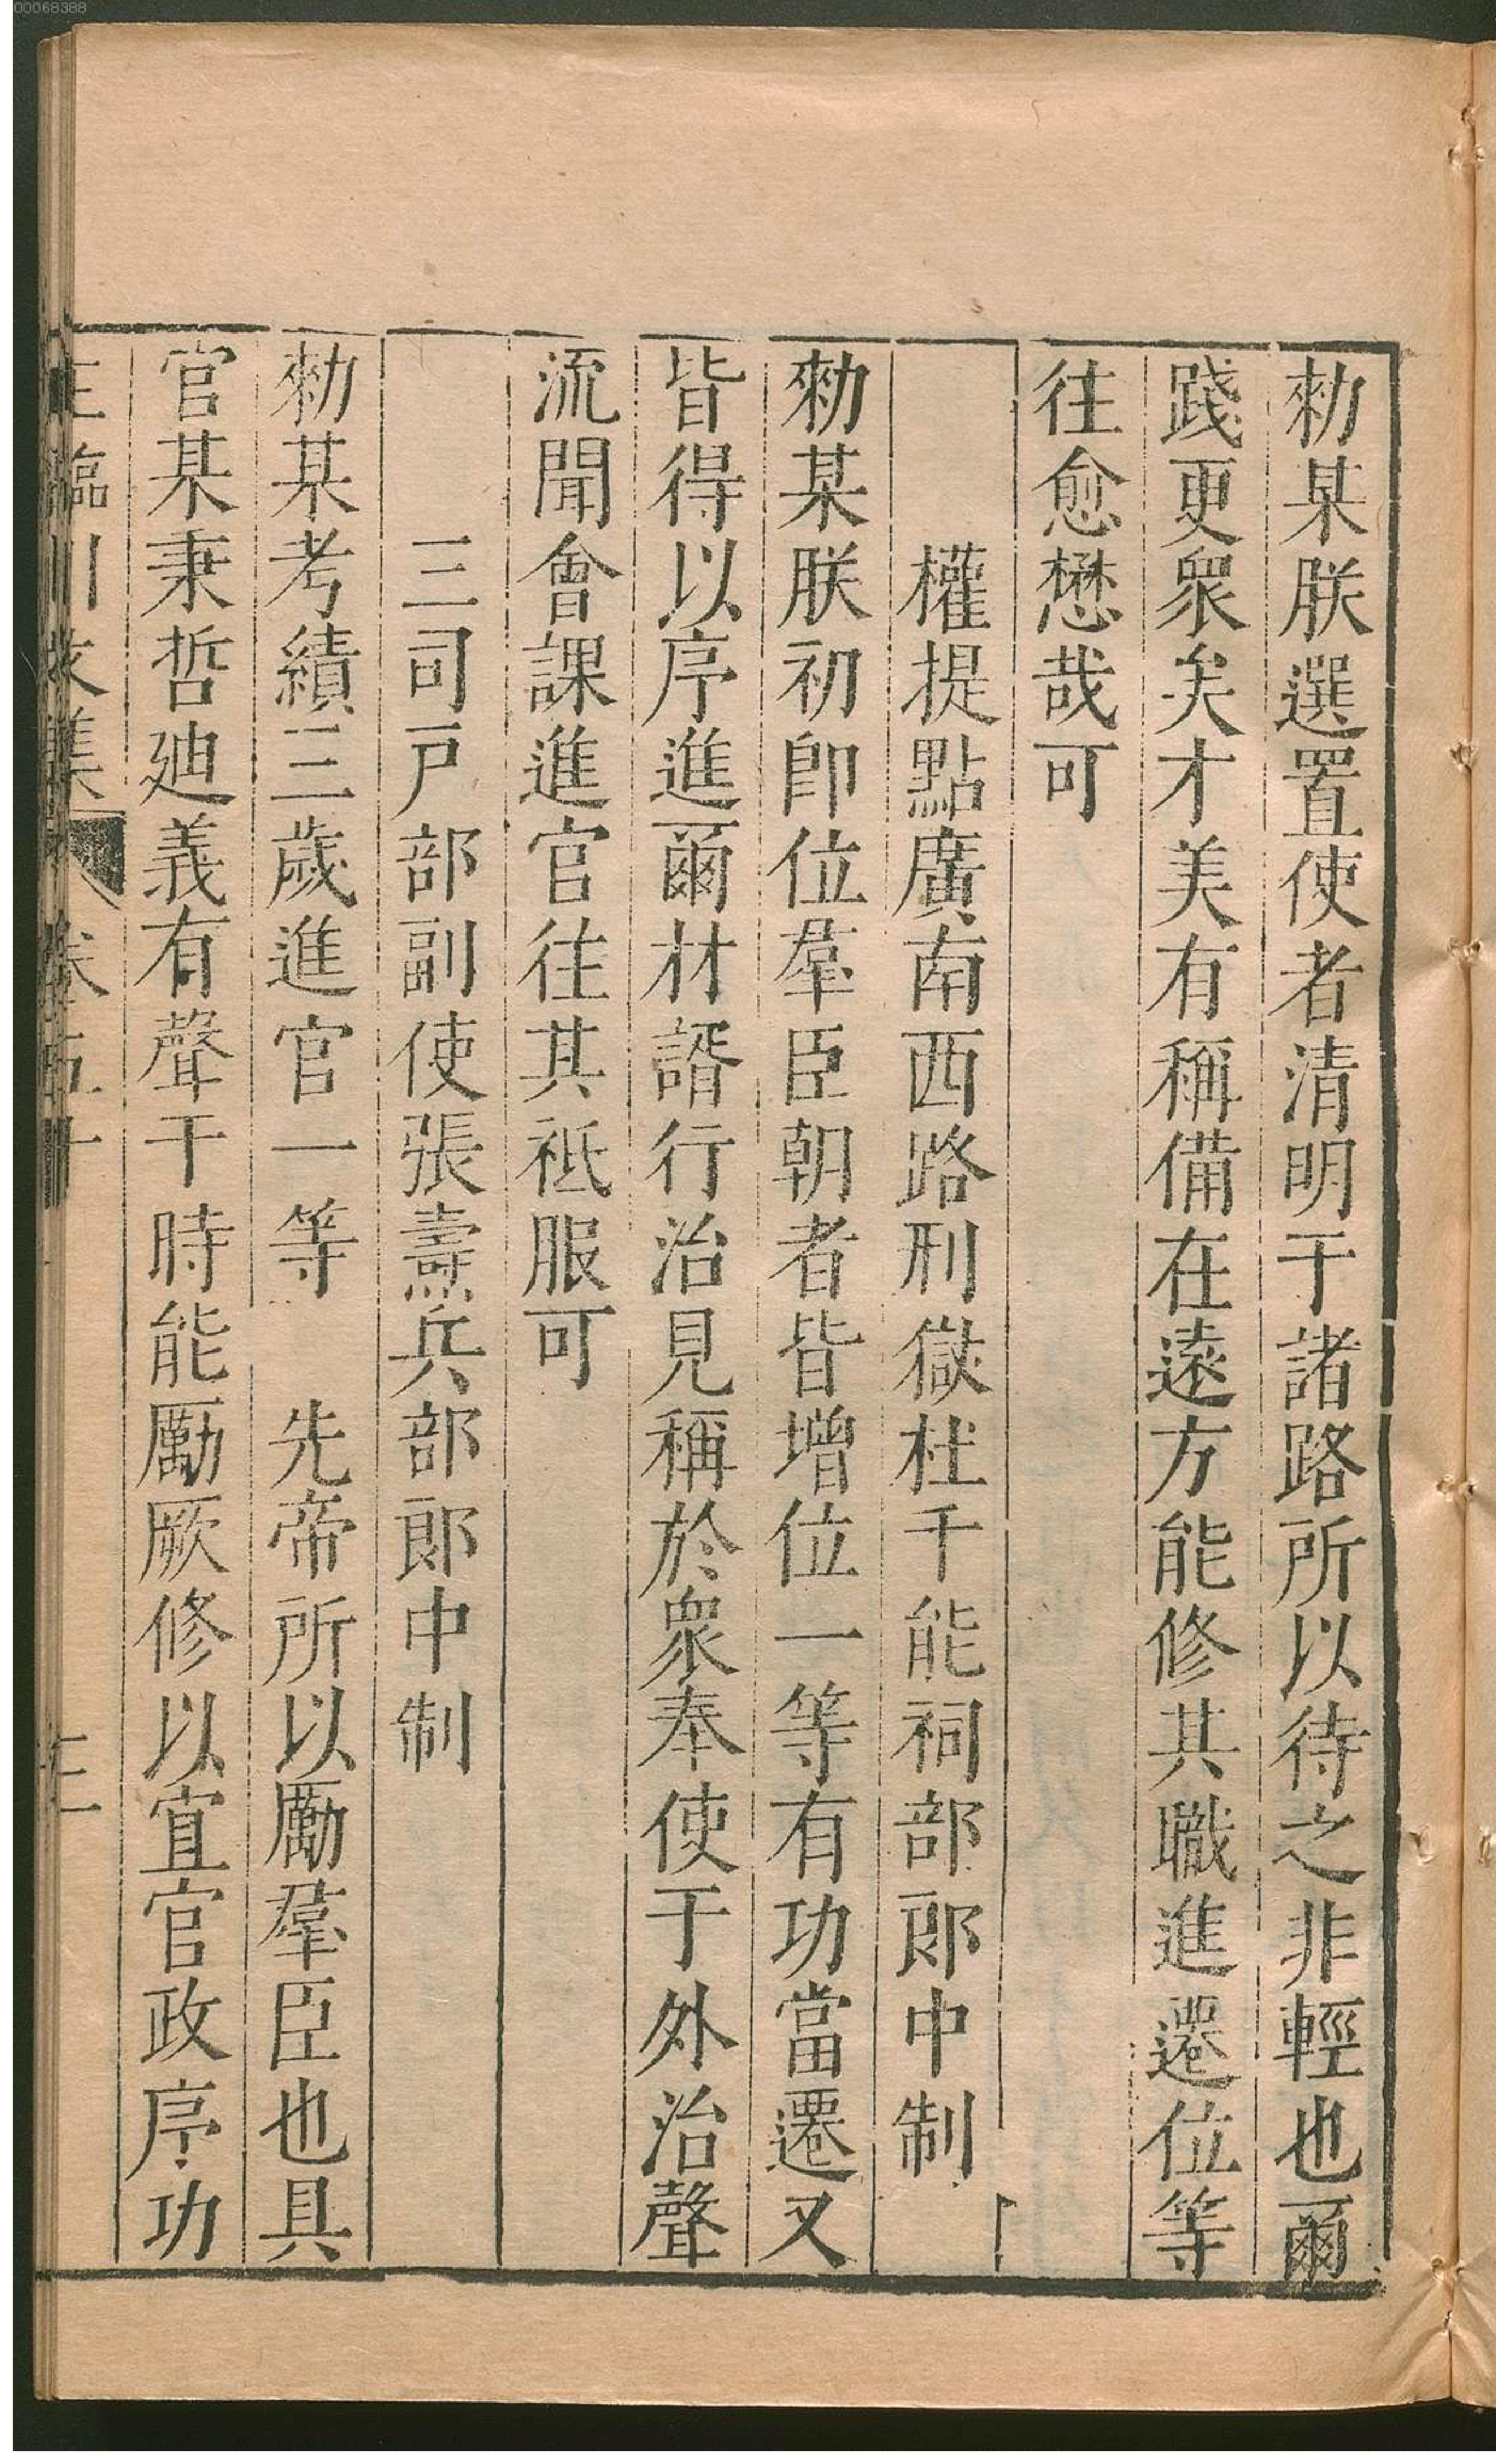 00068388
勑某朕選置使者清明于諸路所以待之非輕也爾
踐更衆矣才美有稱備在遠方能修其職進遷位等
往愈懋哉可
權提點廣南西路刑獄杜千能祠部郎中制
勑某朕初卽位羣臣朝者皆增位一等有功當遷又
皆得以序進爾材諝行治見稱於衆奉使于外治聲
流聞會課進官往其祗服可
三司戸部副使張燾兵部郎中制
勑某考績三歲進官一等 先帝所以勵羣臣也具
官某秉哲廸義有聲干時能勵厥修以宜官政序功
臨川文集 卷五十 三